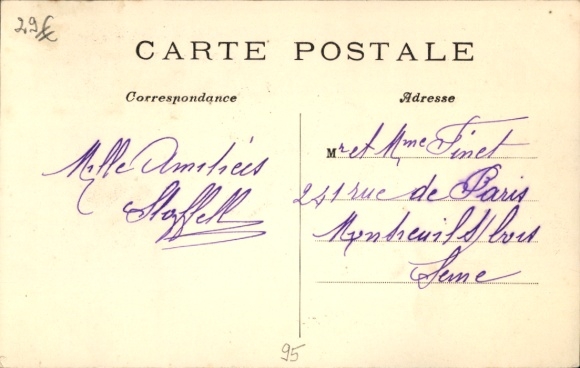 CARTE POSTALE
Correspondance
Adresse
Mille Amitiées
Mr et Mme Finet
241 rue de Paris
Montreuil S/bois
Seine
95